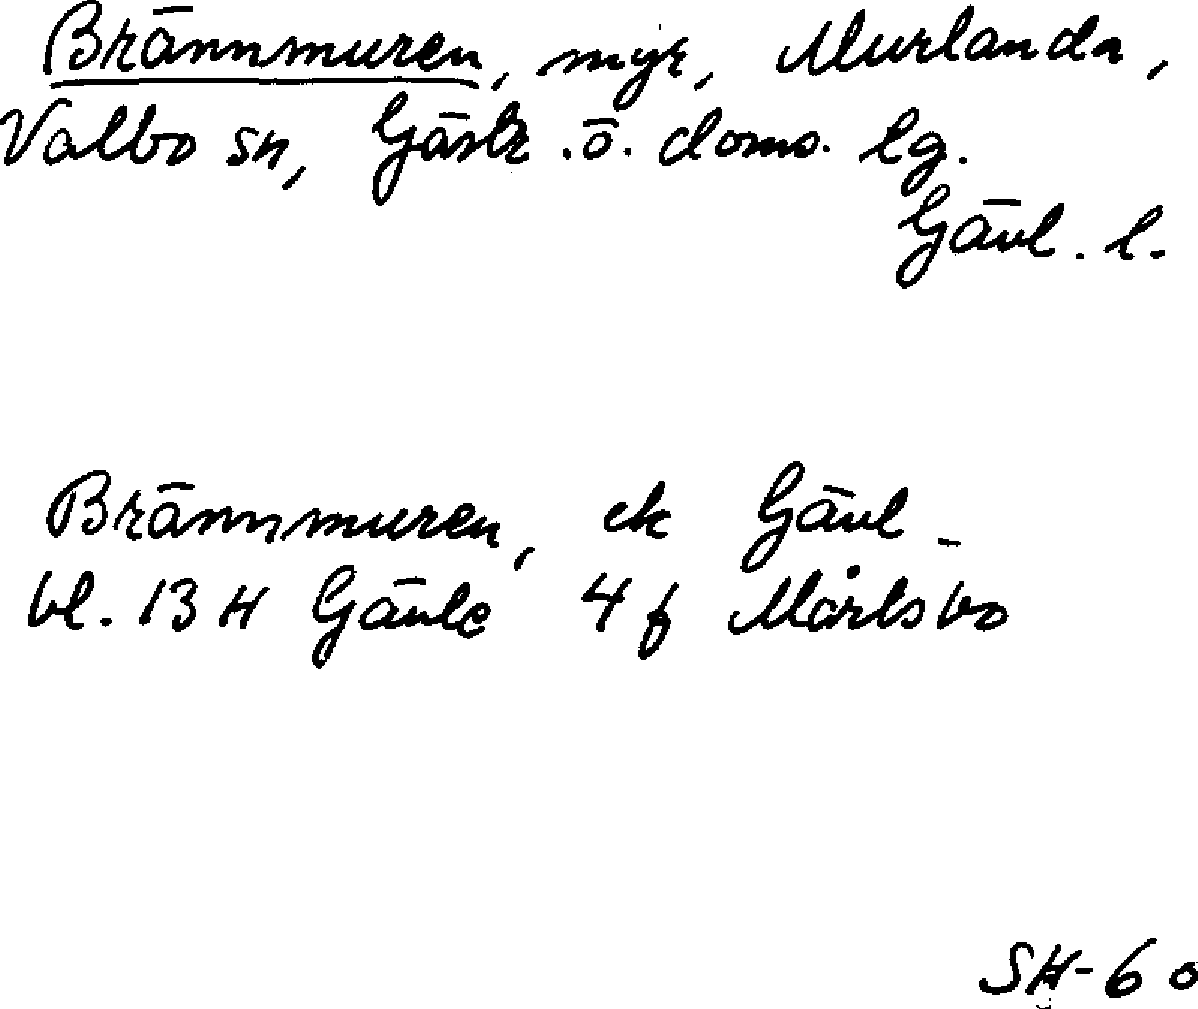 Brännmuren, myr, Murlanda,
Valbo sn, Gästr. ö. doms. lg.
Gävl. l.
Brännmuren, ek Gävl -
bl. 13 H Gävle 4 f Mårtsbo
SH-60